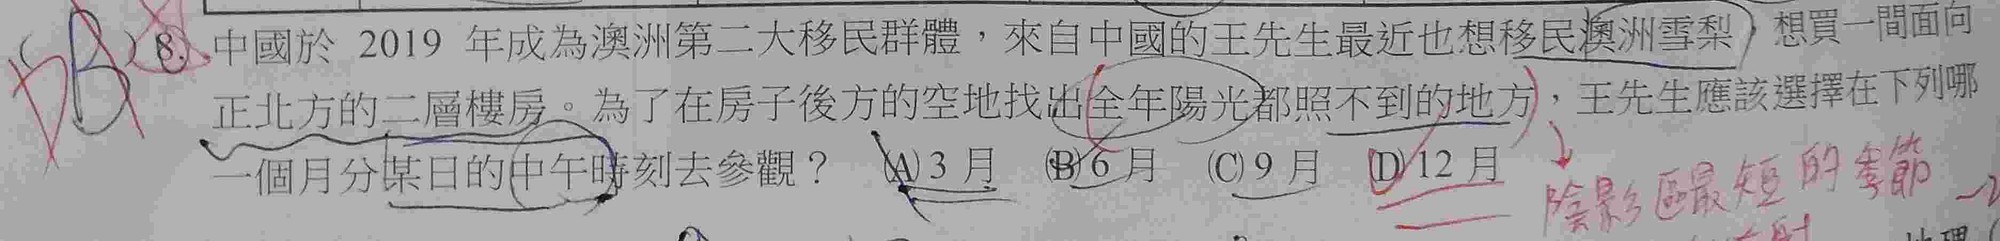 ( B ) 8. 中國於 2019 年成為澳洲第二大移民群體，來自中國的王先生最近也想移民澳洲雪梨，想買一間面向
正北方的二層樓房。為了在房子後方的空地找出全年陽光都照不到的地方，王先生應該選擇在下列哪
一個月分某日的中午時刻去參觀？ (A) 3 月 (B) 6 月 (C) 9 月 (D) 12 月
陰影區最短的季節